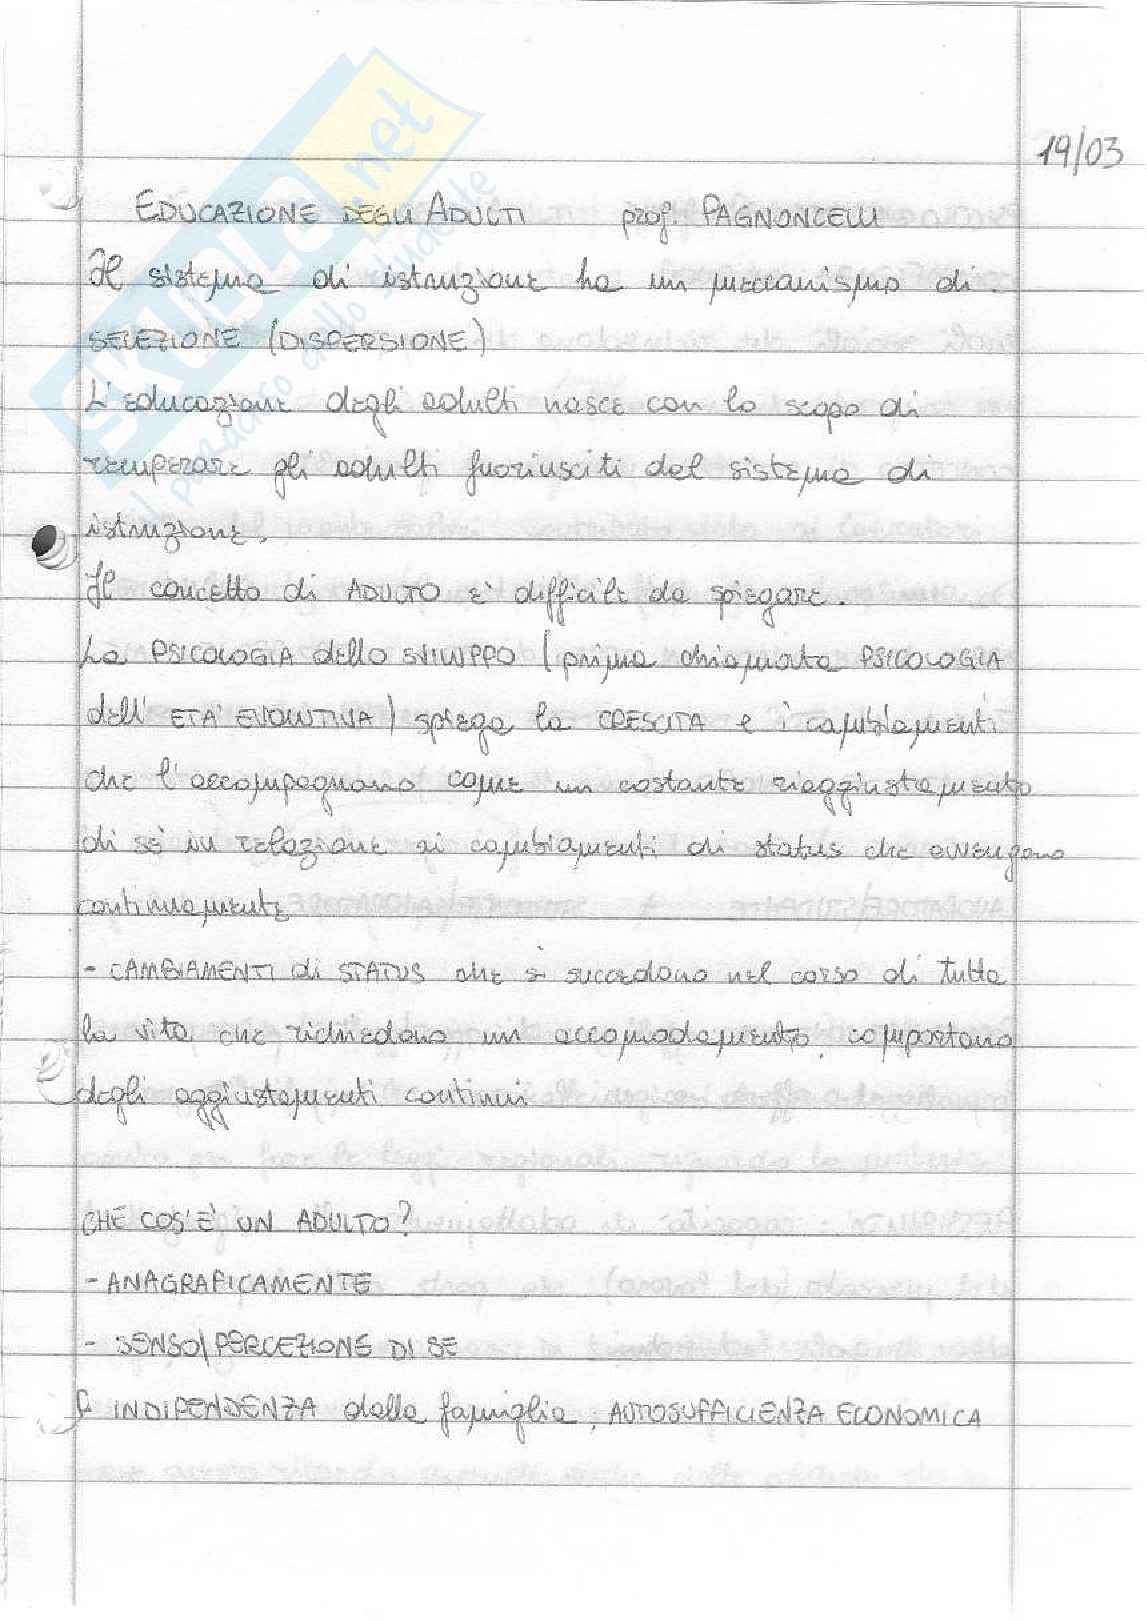 19/03
EDUCAZIONE DEGLI ADULTI prof. PAGNONCELLI
Il sistema di istruzione ha un meccanismo di
SELEZIONE (DISPERSIONE)
L'educazione degli adulti nasce con lo scopo di
recuperare gli adulti fuoriusciti dal sistema di
istruzione.
Il concetto di ADULTO è difficile da spiegare.
La PSICOLOGIA dello SVILUPPO (prima chiamata PSICOLOGIA
dell'ETA' EVOLUTIVA) spiega la CRESCITA e i cambiamenti
che l'accompagnano come un costante riaggiustamento
di sé in relazione ai cambiamenti di status che avvengono
continuamente
- CAMBIAMENTI di STATUS che si succedono nel corso di tutta
la vita che richiedono un accomodamento, comportano
degli aggiustamenti continui
CHE COS'È UN ADULTO?
- ANAGRAFICAMENTE
- SENSO/PERCEZIONE DI SE
INDIPENDENZA dalla famiglia, AUTOSUFFICIENZA ECONOMICA
SKUOLA.net
il paradiso dello studente